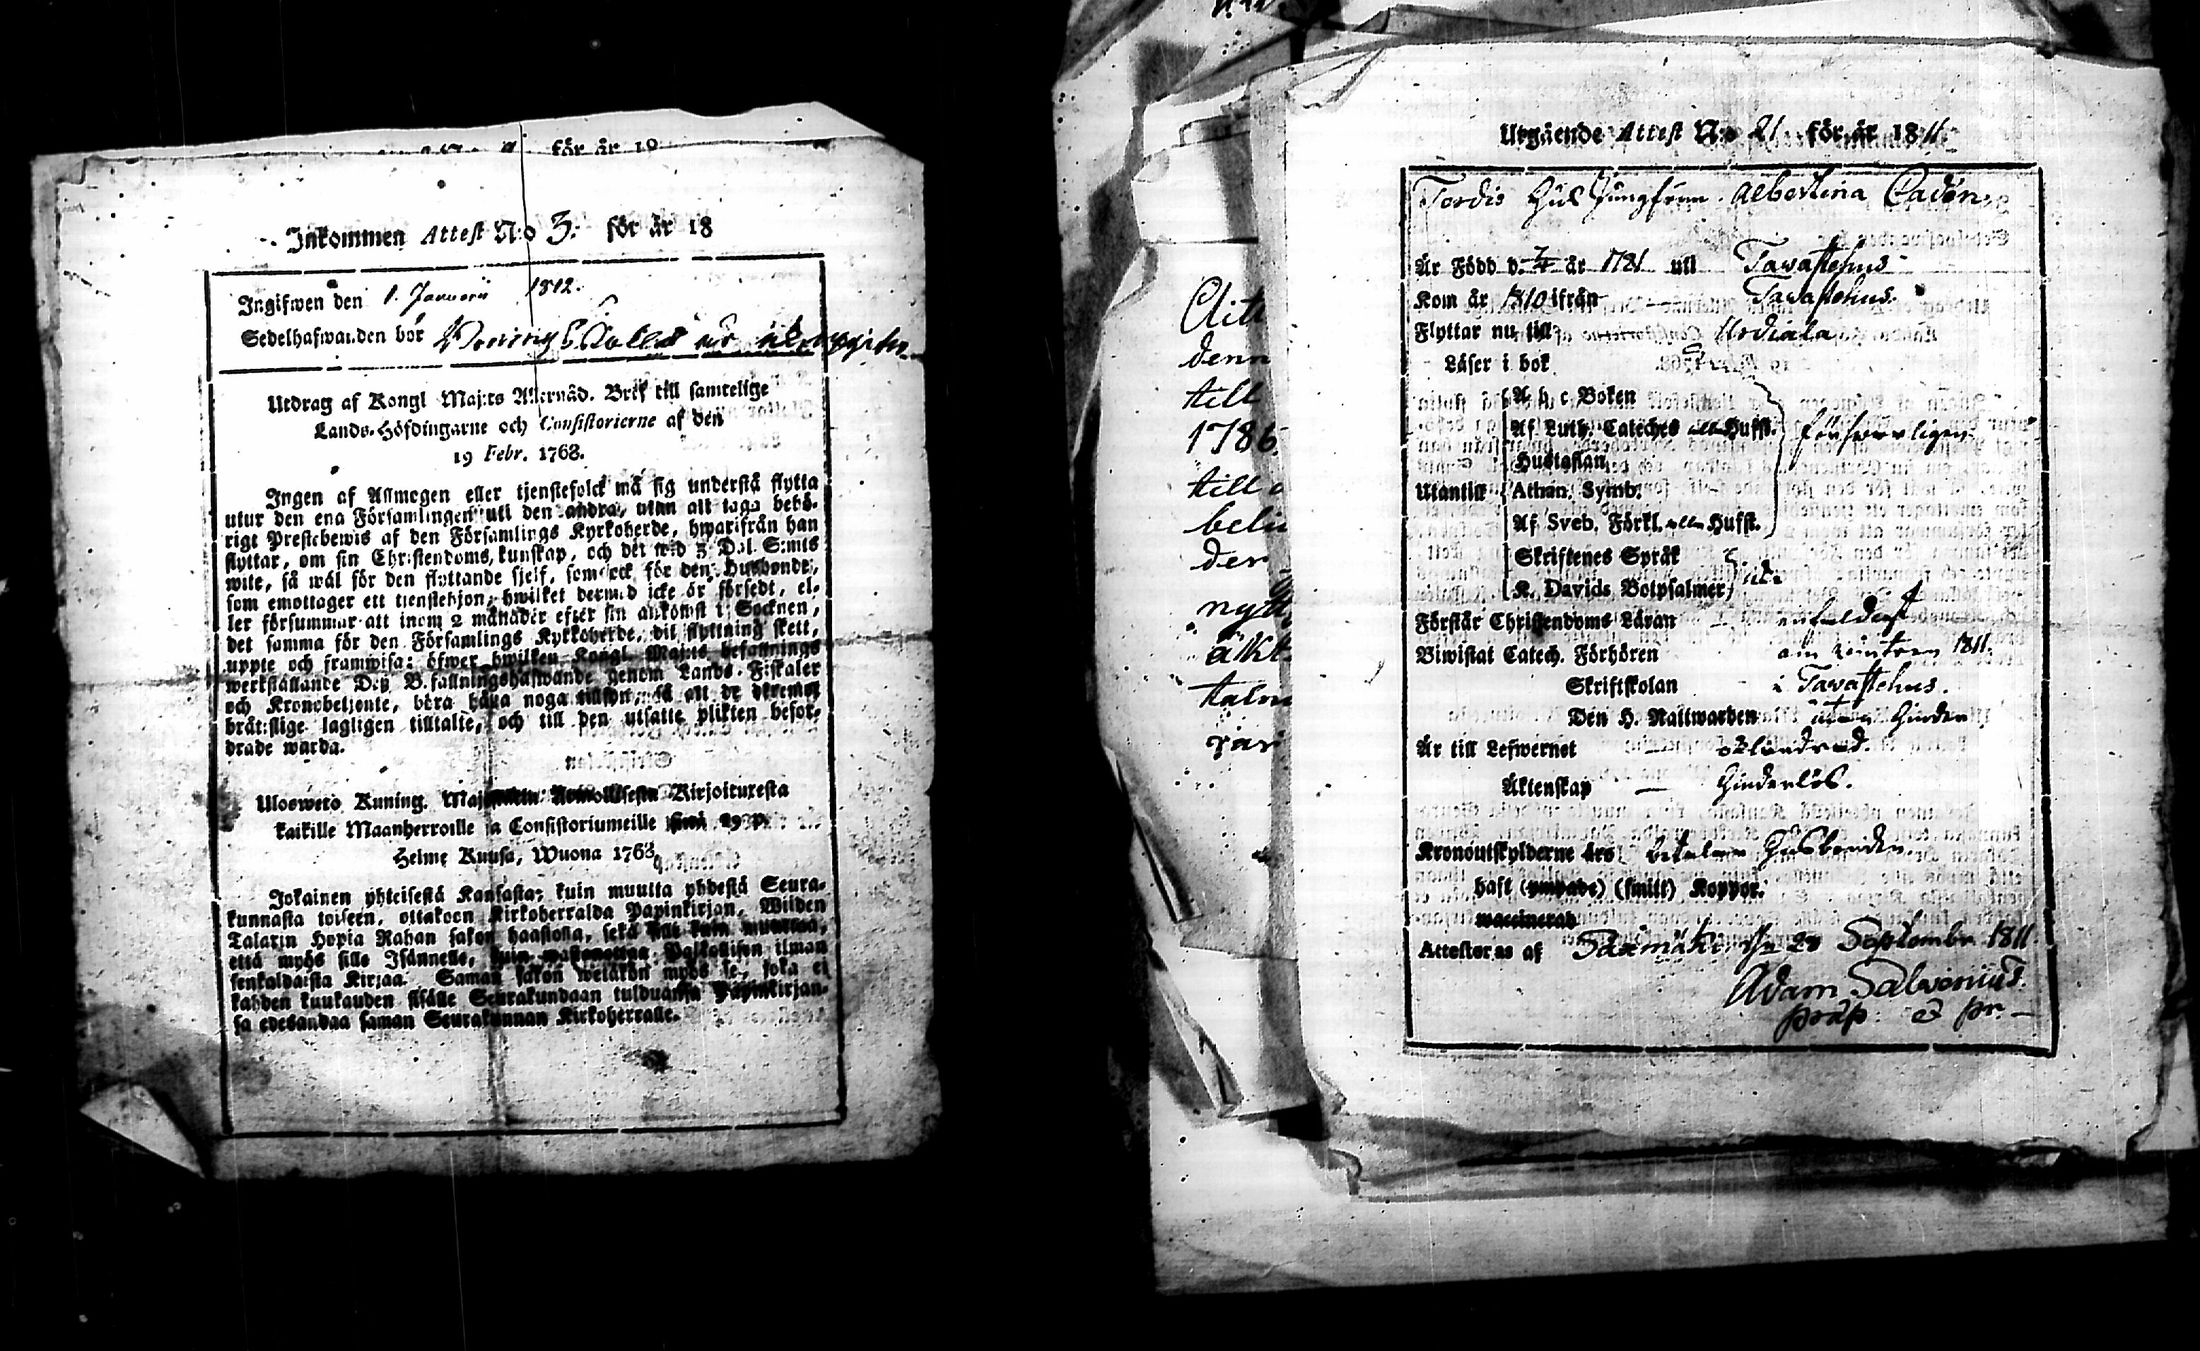 för år 18
Inkommen Attest N:o 3. för år 18
Ingifwen den 1. Januarii 1812.
Sedelhafwanden bör
Utdrag af Kongl Maj:ts Allernåd. Bref till samtelige
Lands-Höfdingarne och Consistorierne af den
19 Febr. 1768.
Ingen af Allmogen eller tjenstefolck må sig understå flytta
utur den ena Församlingen uti den andra, utan att taga behö-
rigt Prestebewis af den Församlings Kyrkoherde, hwarifrån han
flyttar, om sin Christendoms kunskap, och det wid 3 Dal. S:mts
wite, så wäl för den flyttande sjelf, som ock för den Husbonde,
som emottager ett tjenstehjon, hwilket dermed icke är försedt, el-
ler försummar att inom 2 månader efter sin ankomst i Socknen,
det samma för den Församlings Kyrkoherde, dit flyttning skett,
uppte och framwisa; öfwer hwilken Kongl Maj:ts befallnings
werkställande Deß Befallningshafwande genom Lands-Fiskaler
och Kronobetjente, böra hafwa noga tillsyn, så att de
bråtslige lagligen tilltalte, och till den utsatte plikten befor-
drade warda.
Ulosweto Kuning. Kirjoituxesta
kaikille Maanherroille ja Consistoriumeille 19 p.
Helme Kuusa, Wuona 1768
Jokainen yhteisestä Kansasta; kuin muutta yhdestä Seura-
kunnasta toiseen, ottakoon Kirkoherralda Papinkirjan, Wiiden
Talarin Hopia Rahan sakon haastolla, sekä sille kuin muuttaa,
että myös sille Isännelle, kuin Palkollisen ilman
senkaldaista Kirjaa. Saman sakon wetäkön myös se, joka ei
kahden kuukauden sisälle Seurakundaan tulduansa Papinkirjan-
sa edesandaa saman Seurakunnan Kirkoherralle.
denn
till
1786
till
der
äkt
Utgående Attest N:o 21 för år 1811.
Jungfrun Albertina
Är Född d. år 1781 uti Tavastehus
Kom år 1810 ifrån Tavastehus.
Flyttar nu till Urdiala
Läser i bok
A b c Boken
Af Luth. Cateches Hufst.
Hustaflan
Utantill Athan. Symb.
Af Sveb. Förkl. Hufst.
försvarligen
Skriftenes Språk
K. Davids Botpsalmer
Förstår Christendoms Läran enfaldigt
Biwistat Catech. Förhören om wintren 1811.
Skriftskolan i Tavastehus.
Den H. Nattwarden utan hinder
Är till Lefwernet oklandrad.
Äktenskap hinderlös.
Kronoutskylderne betalar Husbonden.
haft (ympade) (smitt) Koppor.
waccinerad
Attesteras af Saxmäki 28 September 1811.
Adam Salvenius.